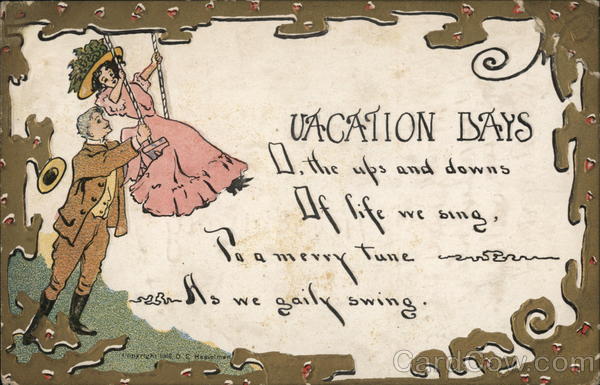 VACATION DAYS
O, the ups and downs
Of life we sing,
To a merry tune
As we gaily swing.
Copyright
CardCow.com